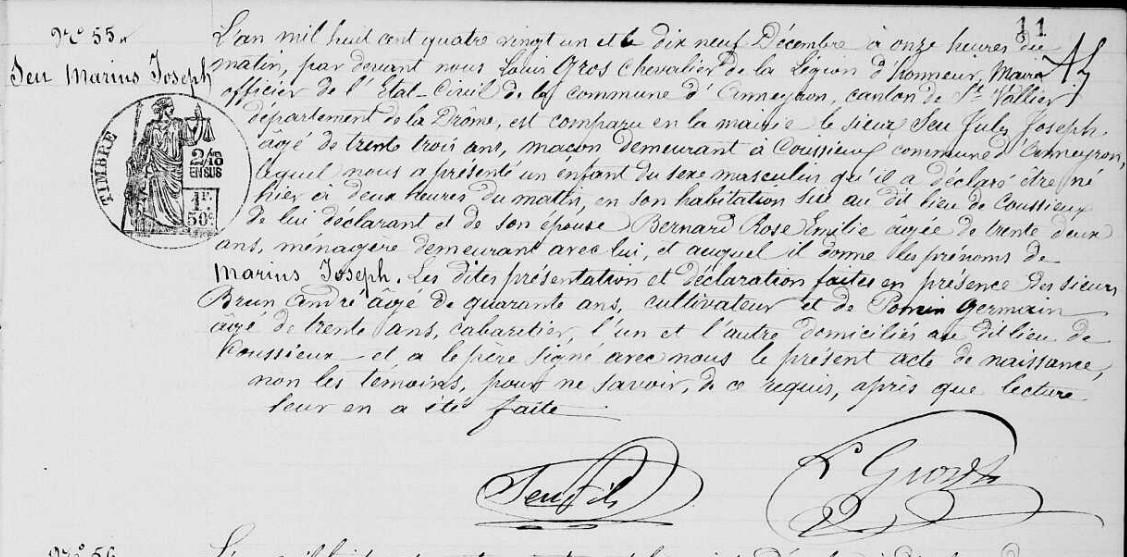 11
N° 55
Seu Marius Joseph
TIMBRE
2/10 EN SUS
1F. 50c
L'an mil huit cent quatre vingt un et le dix neuf Décembre à onze heures du
matin, par devant nous Louis Gros Chevalier de la Légion d'honneur, Maire
officier de l'Etat-Civil de la commune d'Anneyron, canton de St Vallier
département de la Drôme, est comparu en la mairie le sieur Seu Jules Joseph
âgé de trente trois ans, maçon demeurant à Coussieux commune d'Anneyron,
lequel nous a présenté un enfant du sexe masculin qu'il a déclaré être né
hier à deux heures du matin, en son habitation sise au dit lieu de Coussieux
de lui déclarant et de son épouse Bernard Rose Emilie âgée de trente deux
ans, ménagère demeurant avec lui, et auquel il donne les prénoms de
Marius Joseph. Les dites présentation et déclaration faites en présence des sieurs
Brun André âgé de quarante ans, cultivateur et de Germain
âgé de trente ans, cabaretier, l'un et l'autre domiciliés au dit lieu de
Koussieux et a le père signé avec nous le présent acte de naissance,
non les témoins, pour ne savoir, de ce requis, après que lecture
leur en a été faite
Seu fils
L Gros
N° 56